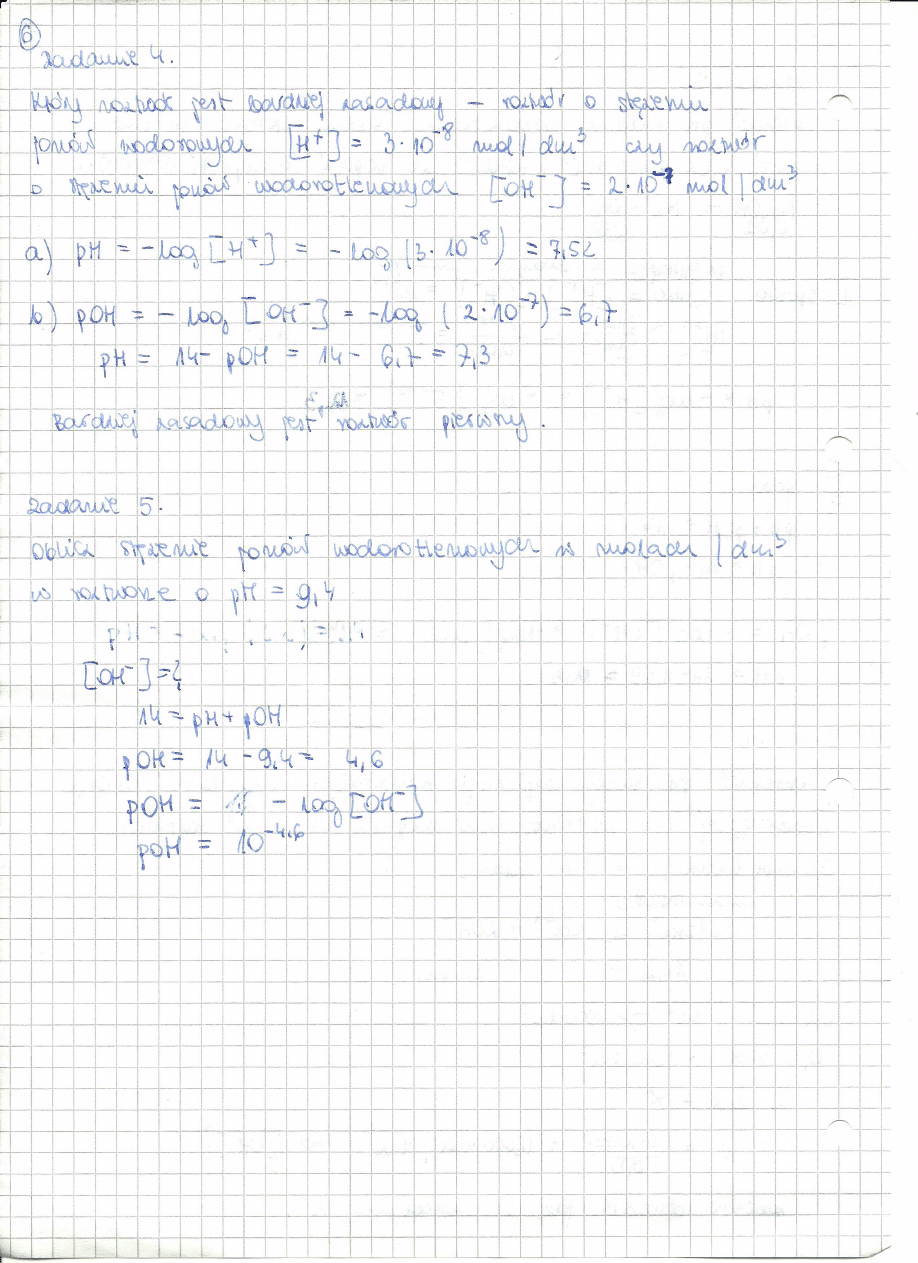 6
Zadanie 4.
Który roztwór jest bardziej zasadowy – roztwór o stężeniu
jonów wodorowych [H⁺] = 3·10⁻⁸ mol/dm³ czy roztwór
o stężeniu jonów wodorotlenowych [OH⁻] = 2·10⁻⁷ mol/dm³
a) pH = -log [H⁺] = -log (3·10⁻⁸) = 7,52
b) pOH = - log [OH⁻] = -log (2·10⁻⁷) = 6,7
pH = 14- pOH = 14 - 6,7 = 7,3
Bardziej zasadowy jest roztwór pierwszy.
Zadanie 5.
Oblicz stężenie jonów wodorotlenowych w molach /dm³
w roztworze o pH = 9,4
[OH⁻] = ?
14 = pH + pOH
pOH = 14 - 9,4 = 4,6
pOH = - log [OH⁻]
pOH = 10⁻⁴·⁶